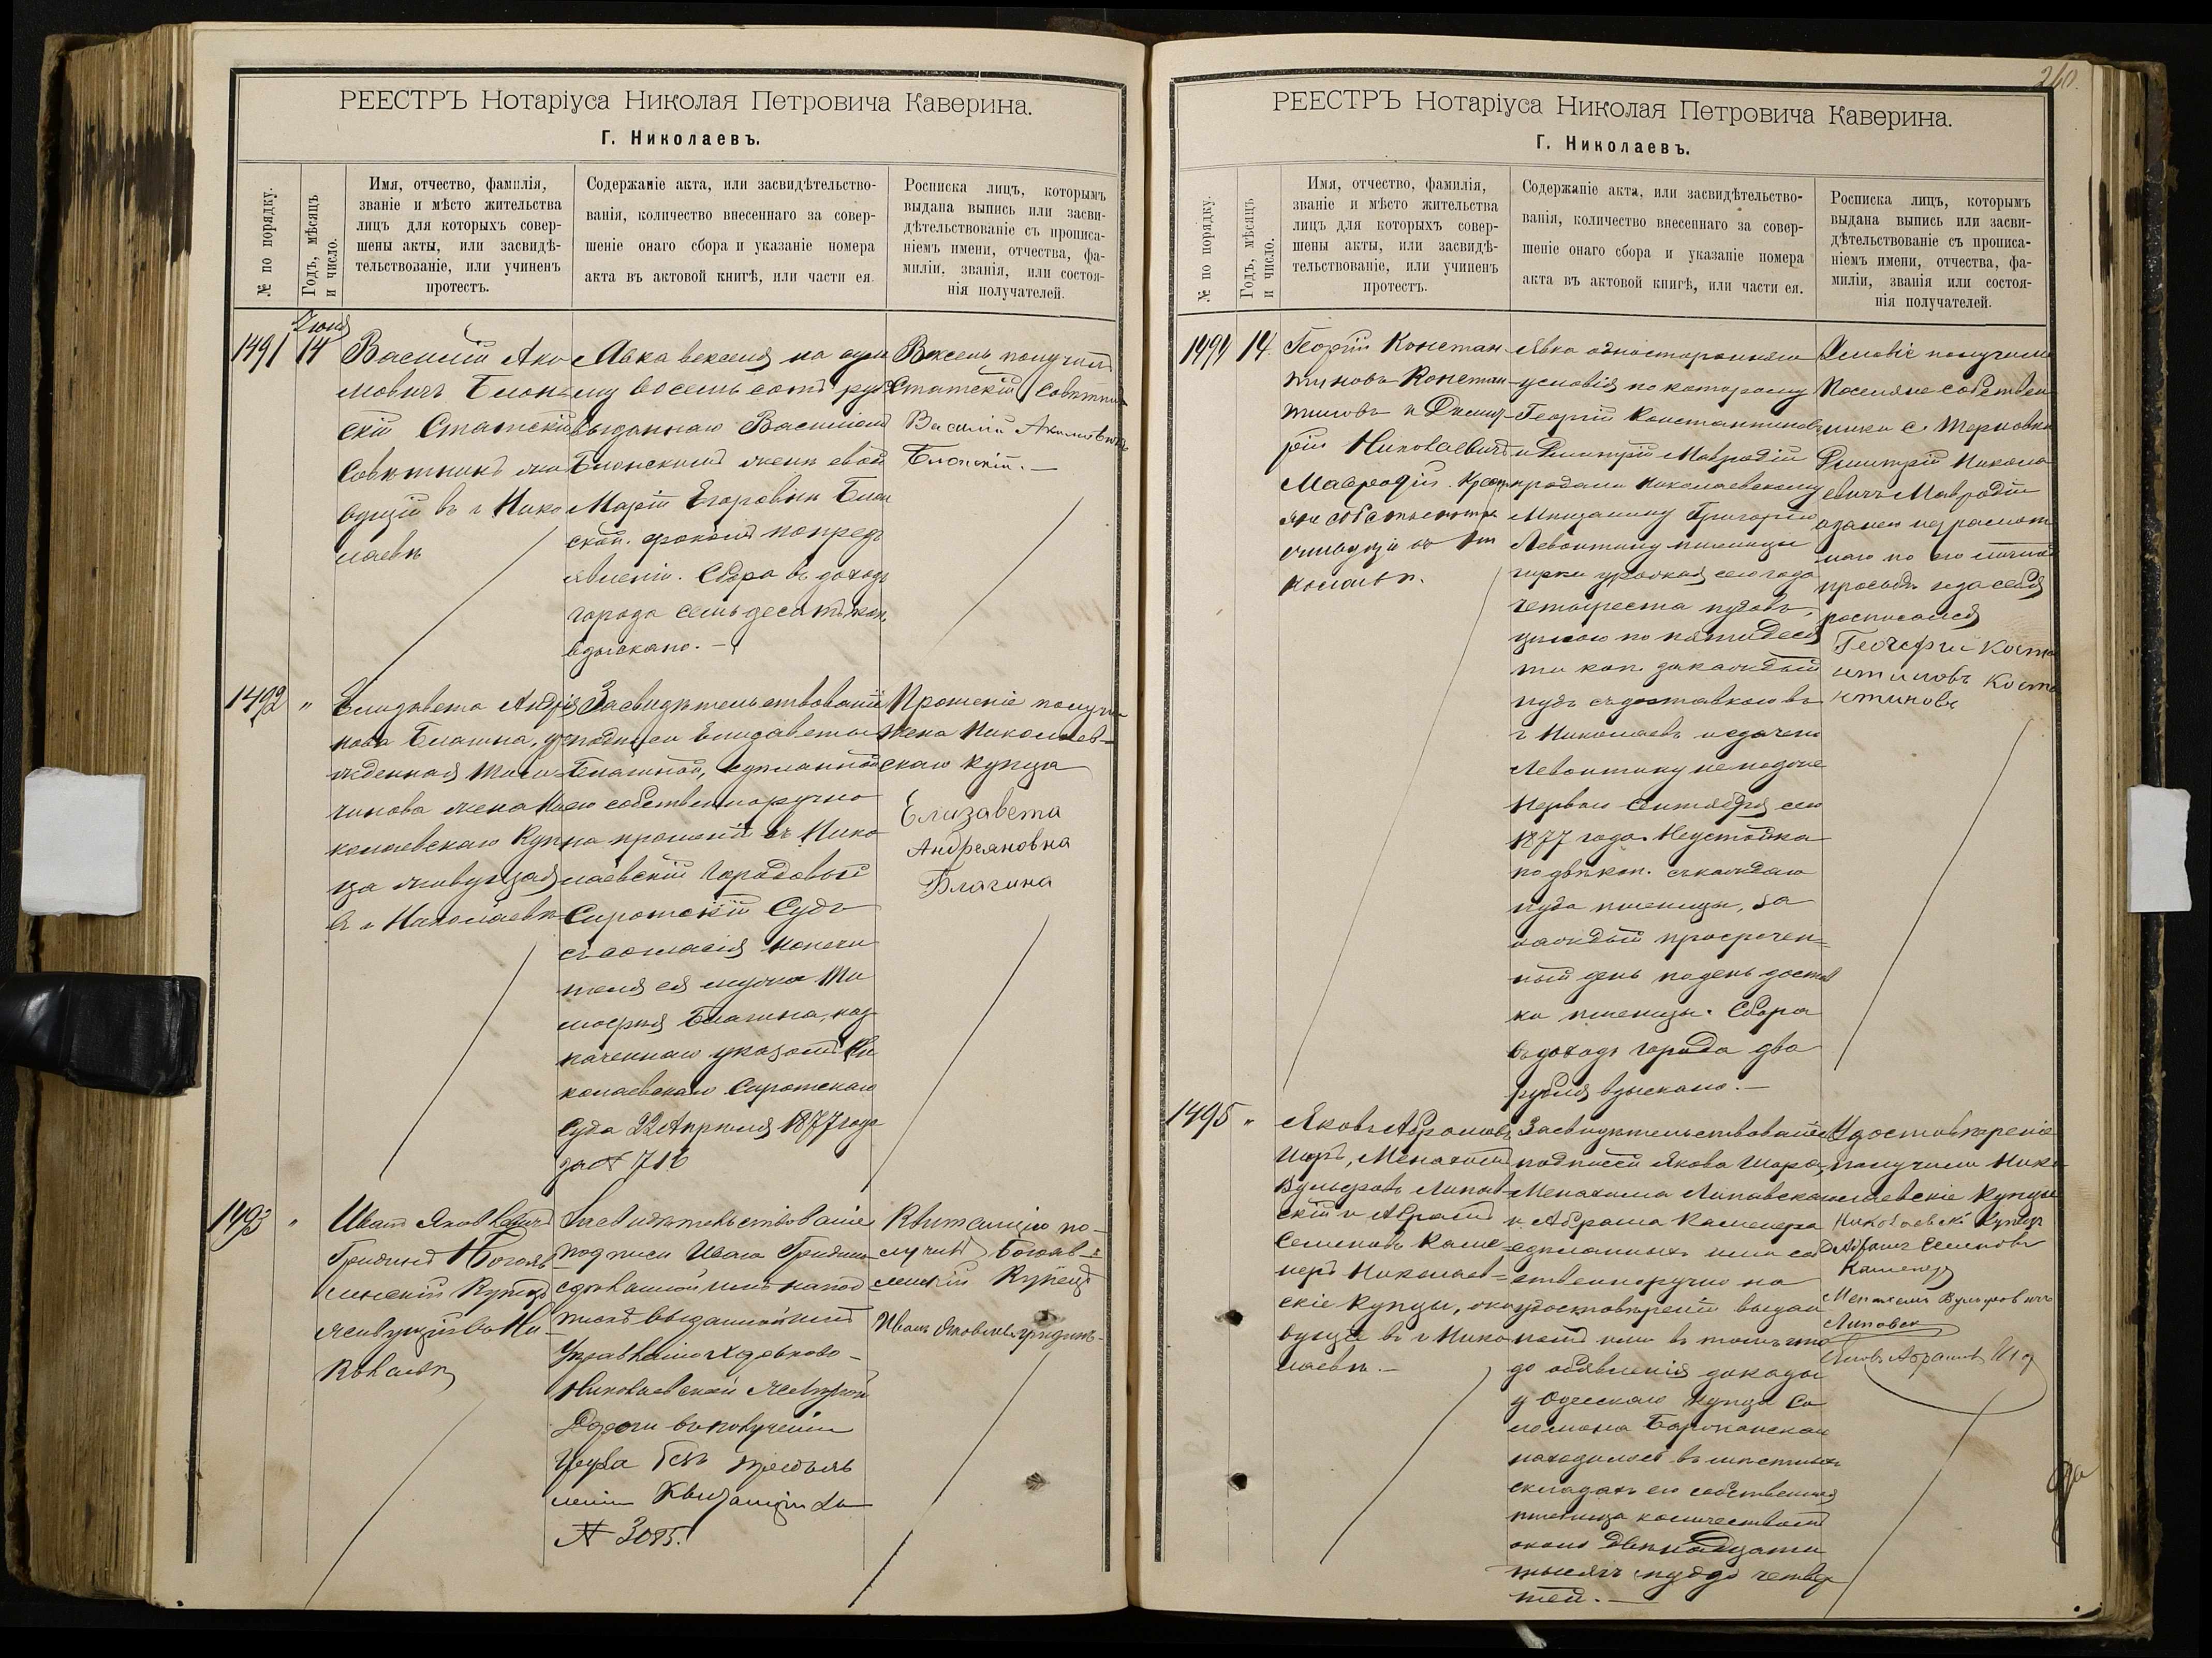 РЕЕСТРЪ Нотаріуса Николая Петровича Каверина.
Г. Николаевъ.
№ по порядку.
Годъ, мѣсяцъ
и число.
Имя, отчество, фамилія,
званіе и мѣсто жительства
лицъ для которыхъ совер-
шены акты, или засвидѣ-
тельствованіе, или учиненъ
протестъ.
Содержаніе акта, или засвидѣтельство-
ванія, количество внесеннаго за совер-
шеніе онаго сбора и указаніе номера
акта въ актовой книгѣ, или части ея.
Росписка лицъ, которымъ
выдана выпись или засви-
дѣтельствованіе съ прописа-
ніемъ имени, отчества, фа-
миліи, званія, или состоя-
нія получателей.
1491
Іюня
14
Василій Аки
мовичъ Блон
скій Статскій
Совѣтникъ жи
вущій въ г Нико
лаевѣ
Явка векселя на сум
му восемь сотъ руб
выданнаго Василіемъ
Блонскимъ женѣ своей
Маріи Егоровнѣ Блон
ской. срокомъ попредъ
явленію. Сбора въ доходъ
города семьдесятъ коп.
взыскано. —
Вексель получилъ
Статскій Совѣтникъ
Василій Акимовичъ
Блонскій. —
1492
"
Елизавета Андрія
нова Благина, уро
жденная
чинова жена Ни
колаевскаго Куп
ца живущая
въ г Николаевѣ
Засвидѣтельствованіе
подписи Елизаветы
Благиной, сдѣланной
ею собственноручно
на прошеніи въ Нико
лаевскій Городовый
Сиротскій Судъ
съ согласія попечи
теля ея мужа Ти
мофея Благина, наз
наченнаго указомъ Ни
колаевскаго Сиротскаго
Суда 22 Апрѣля 1877 года
за № 716
Прошеніе получи
жена Николаев-
скаго купца
Елизавета
Андреяновна
Благина
1493
"
Иванъ Яковлевичъ
Гридинъ Богояв
ленскій Купецъ
Живущій въ Ни
колаевѣ
Засвидѣтельствованіе
подписи Ивана Гридина
сдѣланной имъ на под
выданной имъ
Управленію Харьково-
Николаевской Желѣзной
Дороги въ полученіи
груза безъ предъяв
ленія Квитанціи за
№ 3085.
Квитанцію по-
лучилъ Богояв-
ленскій Купецъ
Иванъ Яковлевъ Гридинъ-
260.
РЕЕСТРЪ Нотаріуса Николая Петровича Каверина.
Г. Николаевъ.
№ по порядку.
Годъ, мѣсяцъ
и число.
Имя, отчество, фамилія,
званіе и мѣсто жительства
лицъ для которыхъ совер-
шены акты, или засвидѣ-
тельствованіе, или учиненъ
протестъ.
Содержаніе акта, или засвидѣтельство-
ванія, количество внесеннаго за совер-
шеніе онаго сбора и указаніе номера
акта въ актовой книгѣ, или части ея.
Росписка лицъ, которымъ
выдана выпись или засви-
дѣтельствованіе съ прописа-
ніемъ имени, отчества, фа-
миліи, званія или состоя-
нія получателей.
1494
14.
Георгій Констан
тиновъ Констан
тиновъ и Дмит
рій Николаевичъ
Мавродій. Крест
яне собственники
живущіе въ Ни
колаевѣ.
Явка односторонняго
условія по которому
Георгій Константиновъ
и Дмитрій Мавродій
продали Николаевскому
Мѣщанину Григорію
Левонтину пшеницы
гирки урожая сего года
четыреста пудовъ,
цѣною по пятидеся
ти коп. за каждый
пудъ съ доставкою въ
г Николаевъ и сдачею
Левонтину не позже
Перваго Сентября сего
1877 года. Неустойка
по двѣ коп. съ каждаго
пуда пшеницы, за
каждый просрочен=
ный день по день достав
ки пшеницы. Сбора
въ доходъ города два
рубля взыскано. —
Условіе получили
Поселяне собствен
ники с. Терновки
Дмитрій Никола
евичъ Мавродій
а за неграмот
наго по его личной
просьбѣ и за себя
росписался
Георгіи Конста
нтиновъ Конста
нтиновъ
1495
"
Яковъ Абрамовъ
Шоръ, Менахимъ
Вульфовъ Липав-
скій и Абрамъ
Семеновъ Каме-
неръ Николаев=
скіе Купцы, жи
вущіе въ г Нико
лаевѣ. —
Засвидѣтельствованіе
подписей Якова Шора,
Менахима Липавскаго
и Абрама Каменера
сдѣланныхъ ими соб
ственноручно на
удостовѣреніи выдан
номъ ими въ томъ что
до объявленія
у Одесскаго Купца Со
ломона
находилось въ мѣстныхъ
складахъ его собственная
пшеница количествомъ
около двѣнадцати
тысячъ четвер
тей. —
Удостовѣреніе
получили Нико
лаевскіе Купцы
Николаевскі Купецъ
Абрамъ Семеновъ
Каменеръ
Менахемъ Вульфовичъ
Липовск
Яковъ Абрамовъ Шор